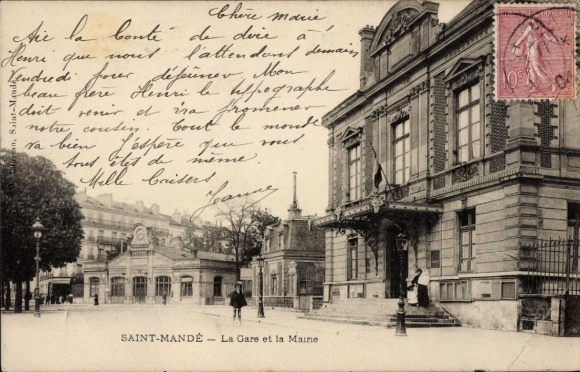 Chère Marie
Aie la Bonté de dire à
Henri que nous l'attendons demain
Vendredi pour déjeuner Mon
beau frère Henri le typographe
doit venir et ira promener
notre cousin. Tout le monde
va bien j'espère que vous
tous êtes de même.
Mille Baisers
Jeanne
SAINT-MANDÉ — La Gare et la Mairie
10
Saint-Mandé